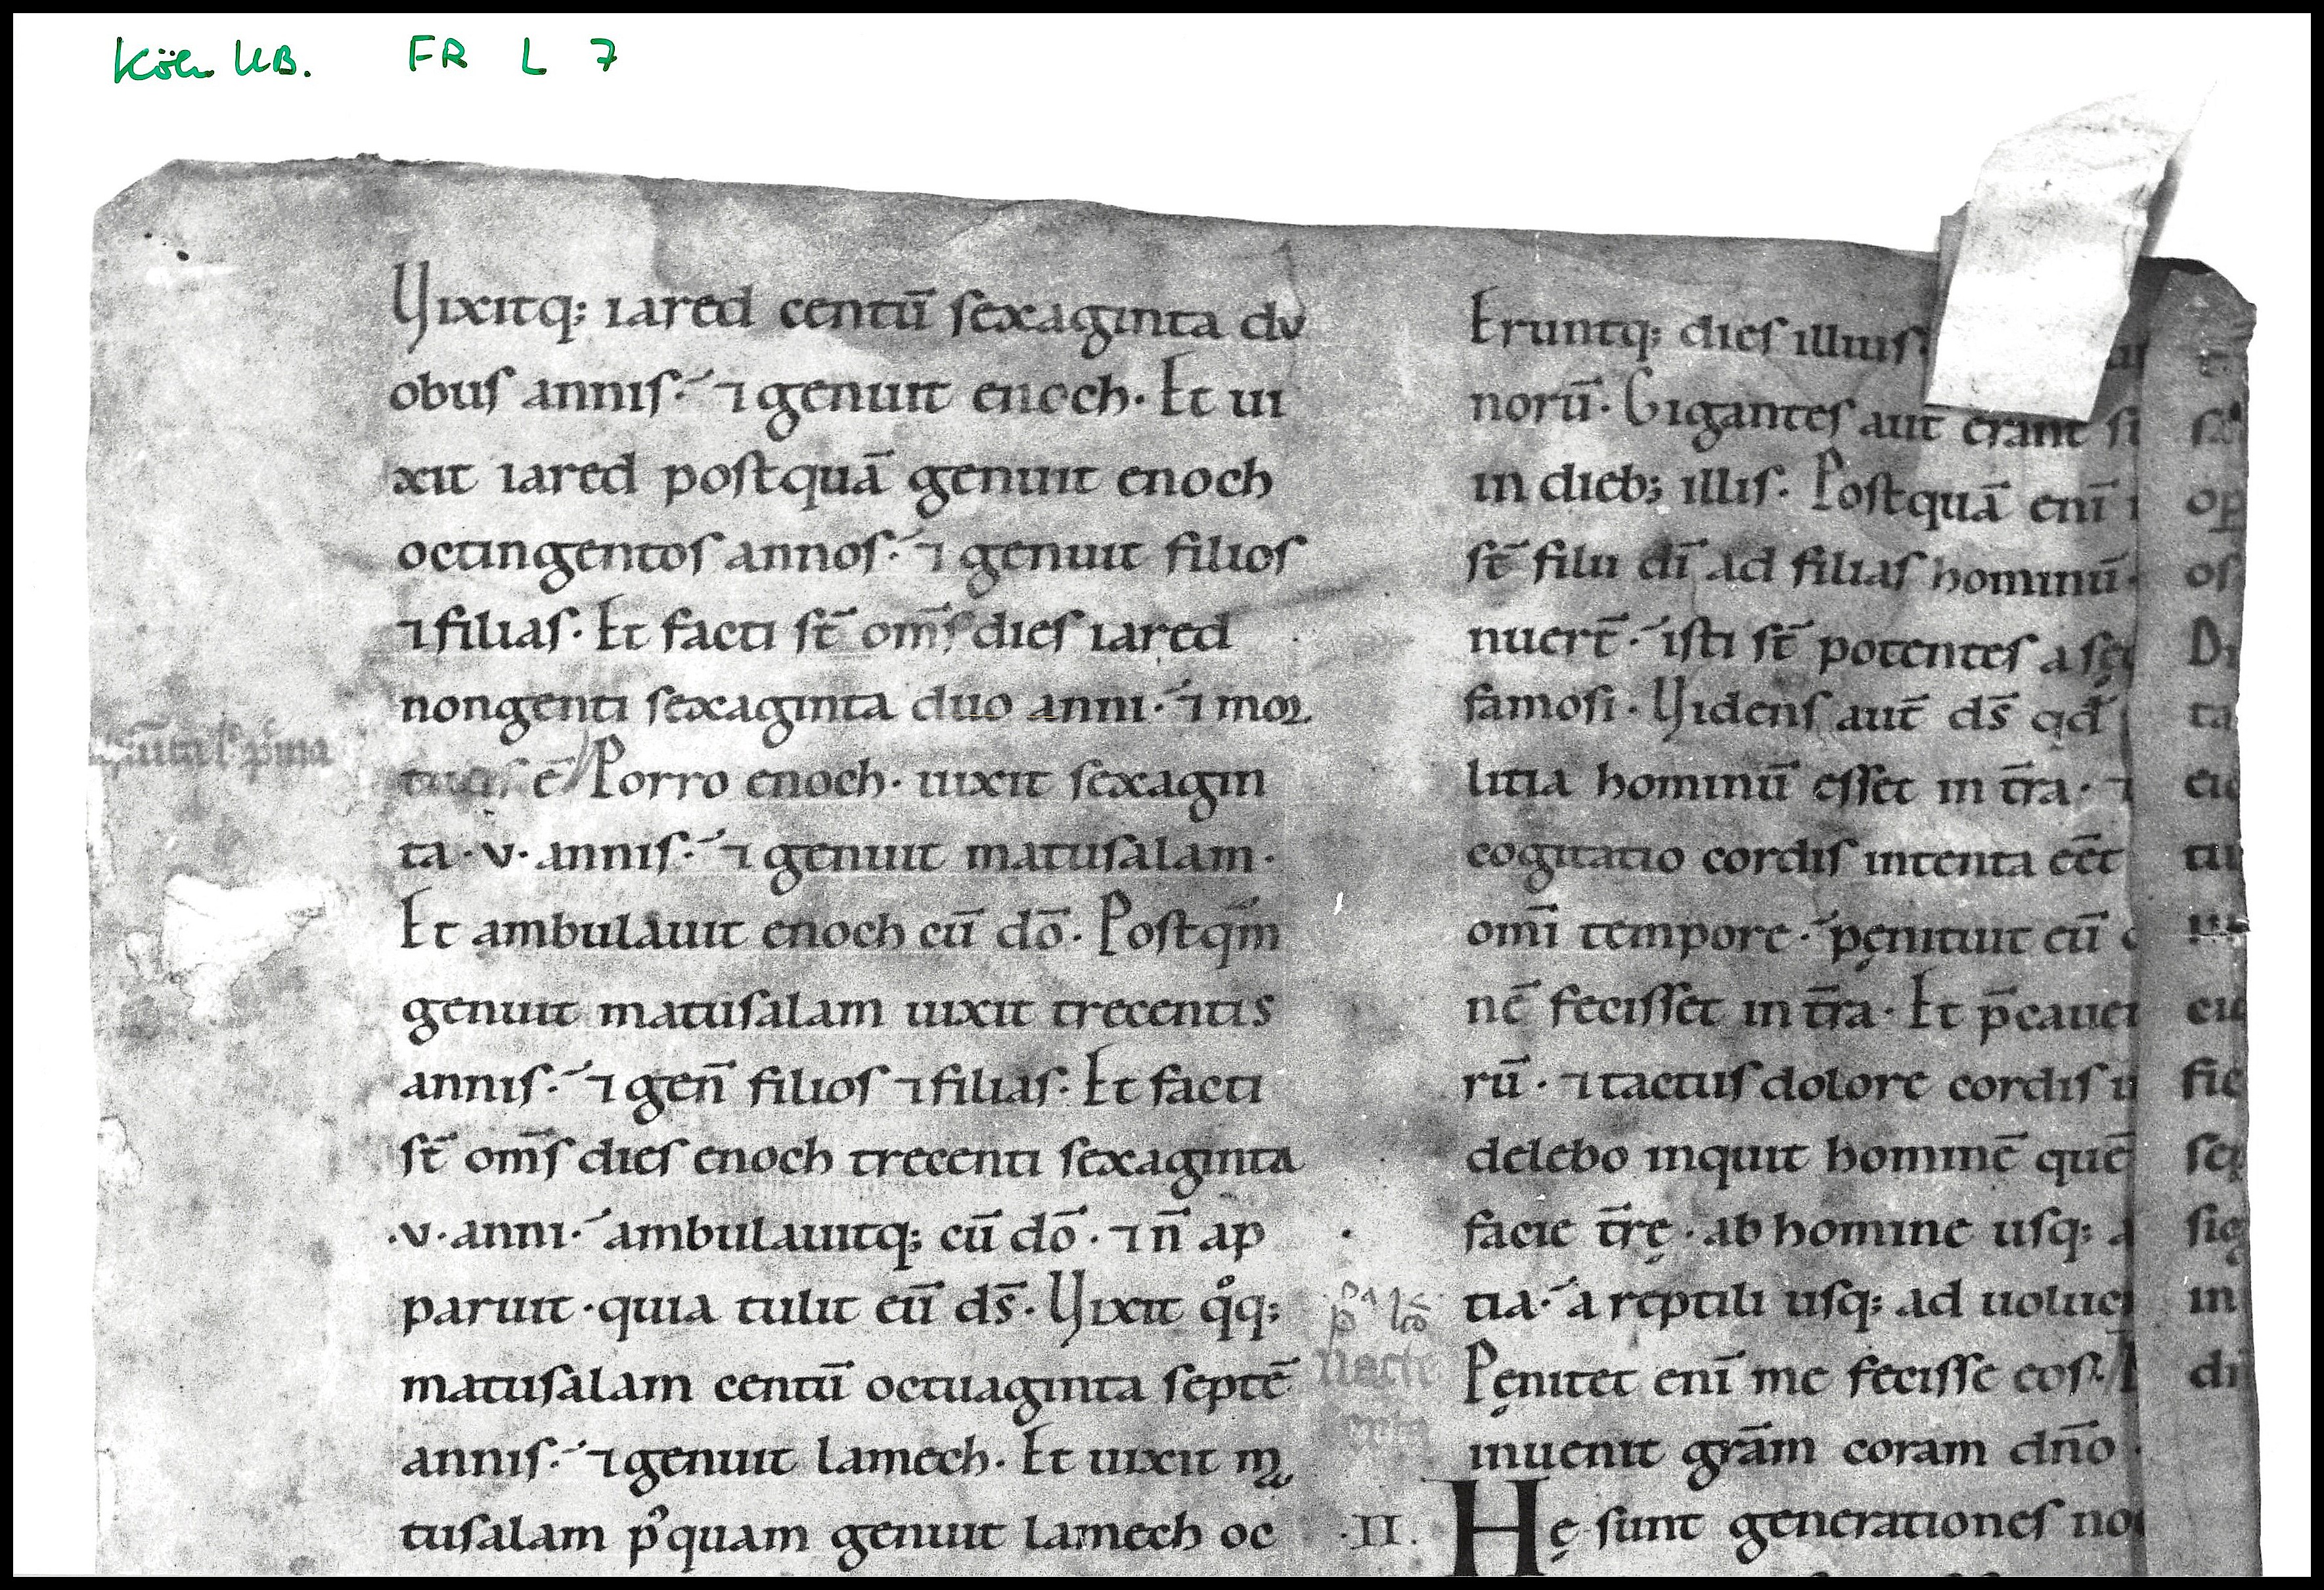 Köln UB. FR L 7
Vixitq; iared centū sexaginta du
obus annis· ⁊ genuit enoch· Et ui
xit iared postquā genuit enoch
octingentos annos· ⁊ genuit filios
⁊ filias· Et facti st̄ om̄s dies iared
nongenti sexaginta duo anni· ⁊ mor
ē Porro enoch· uixit sexagin
ta· v· annis· ⁊ genuit matusalam·
Et ambulauit enoch cū do̅· Postqm̄
genuit matusalam uixit trecentis
annis· ⁊ gen̄ filios ⁊ filias· Et facti
st̄ om̄s dies enoch trecenti sexaginta
·v· anni· ambulauitq; cū do̅· ⁊ n̄ ap
paruit· quia tulit eū ds̄· Vixit qͦq;
matusalam centū octuaginta septē
annis· ⁊ genuit lamech· Et uixit ma
tusalam p᾿quam genuit lamech oc
Eruntq; dies illius
norū· Gigantes aut̄ erant s
in dieb; illis· Postquā enī
st̄ filii dī ad filias hominū·
nuert̄· isti st̄ potentes a sęc
famosi· Videns aut̄ ds̄ qd̄
litia hominū esset in tr̄a· ⁊
cogitatio cordis intenta eēt
om̄i tempore· pęnituit eū
nē fecisset in tr̄a· Et p̄cauer
rū· ⁊ tactus dolore cordis i
delebo inquit hominē quē
facie tr̄ę· ab homine usq; a
tia· a reptili usq; ad uoluc
Pęnitet enī me fecisse eos·
inuenit gr̄am coram dn̄o·
·II· Hę sunt generationes no